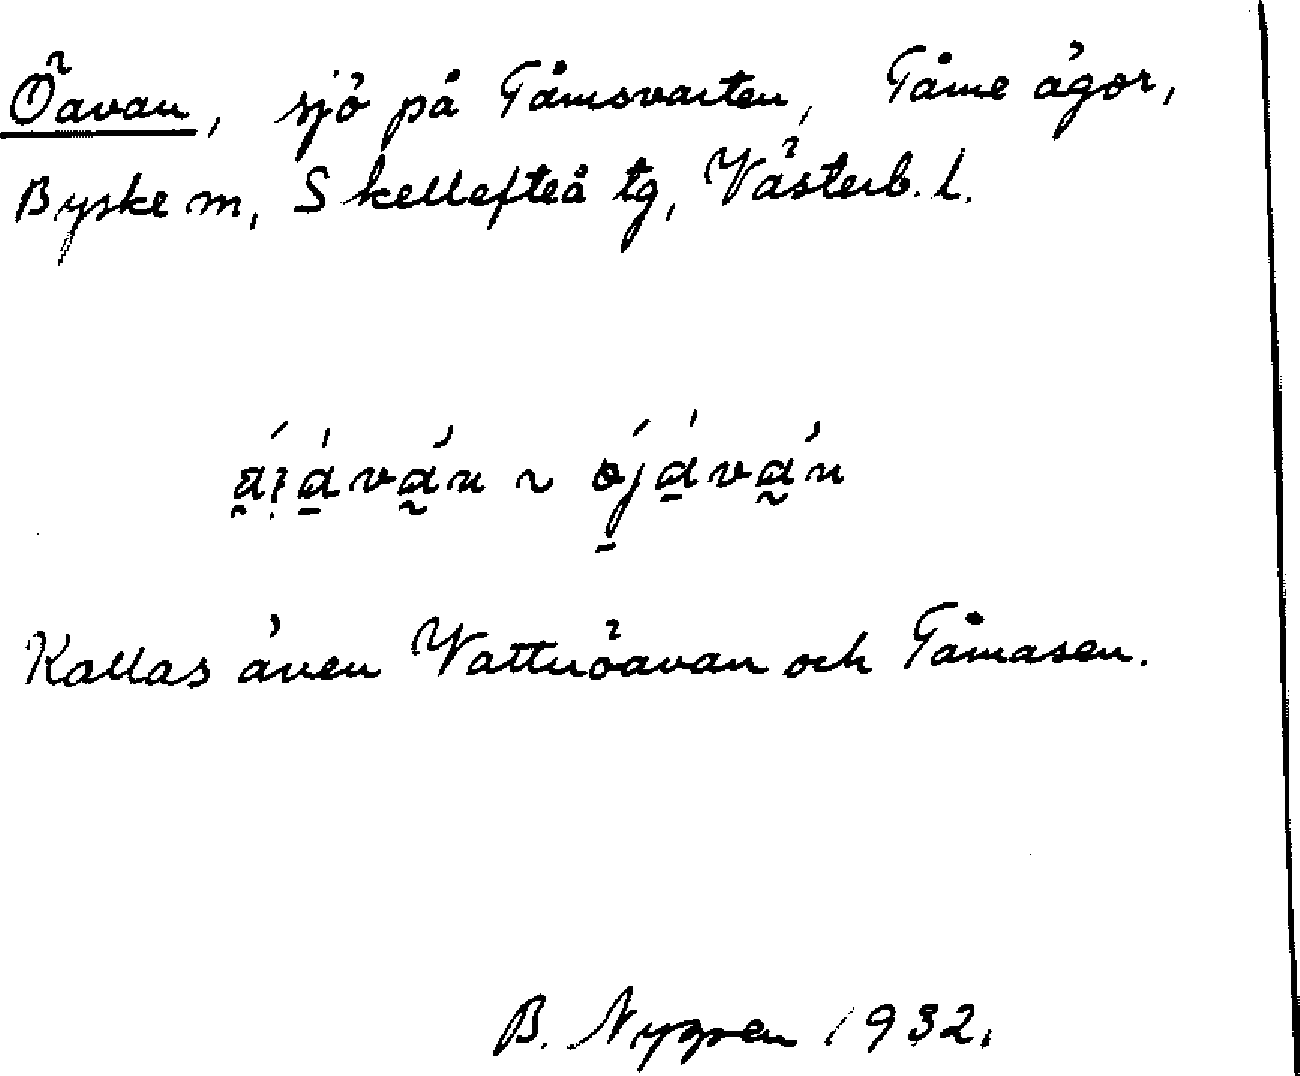 Öavan, sjö på Tåmsvarten, Tåme ägor,
Byske sn, Skellefteå tg, Västerb. l.
Kallas även Vattuöavan och Tåmasen.
B. Nygren 1932.